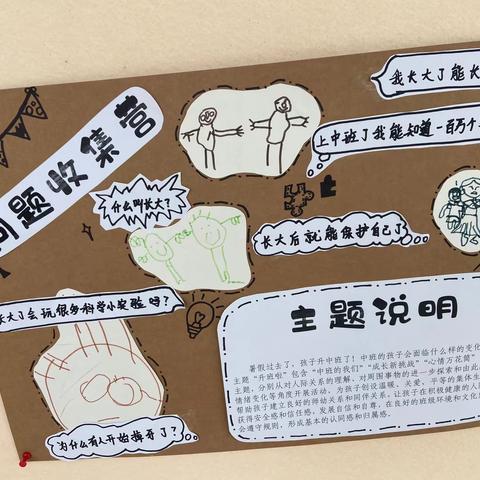 问题收集营
我长大了能长
上中班了我能知道一百万个
什么叫长大？
长大后就能保护自己了
长大了会玩很多科学小实验吗？
为什么有人开始换牙了？
主题说明
暑假过去了，孩子升中班了！中班的孩子会面临什么样的变化
主题“升班啦”包含“中班的我们”“成长新挑战”“心情万花筒”
主题，分别从对人际关系的理解、对周围事物的进一步探索和由此
情绪变化等角度开展活动，为孩子创设温暖、关爱、平等的集体生
帮助孩子建立良好的师幼关系和同伴关系，让孩子在积极健康的人
获得安全感和信任感，发展自信和自尊，在良好的班级环境和文化
会遵守规则，形成基本的认同感和归属感。